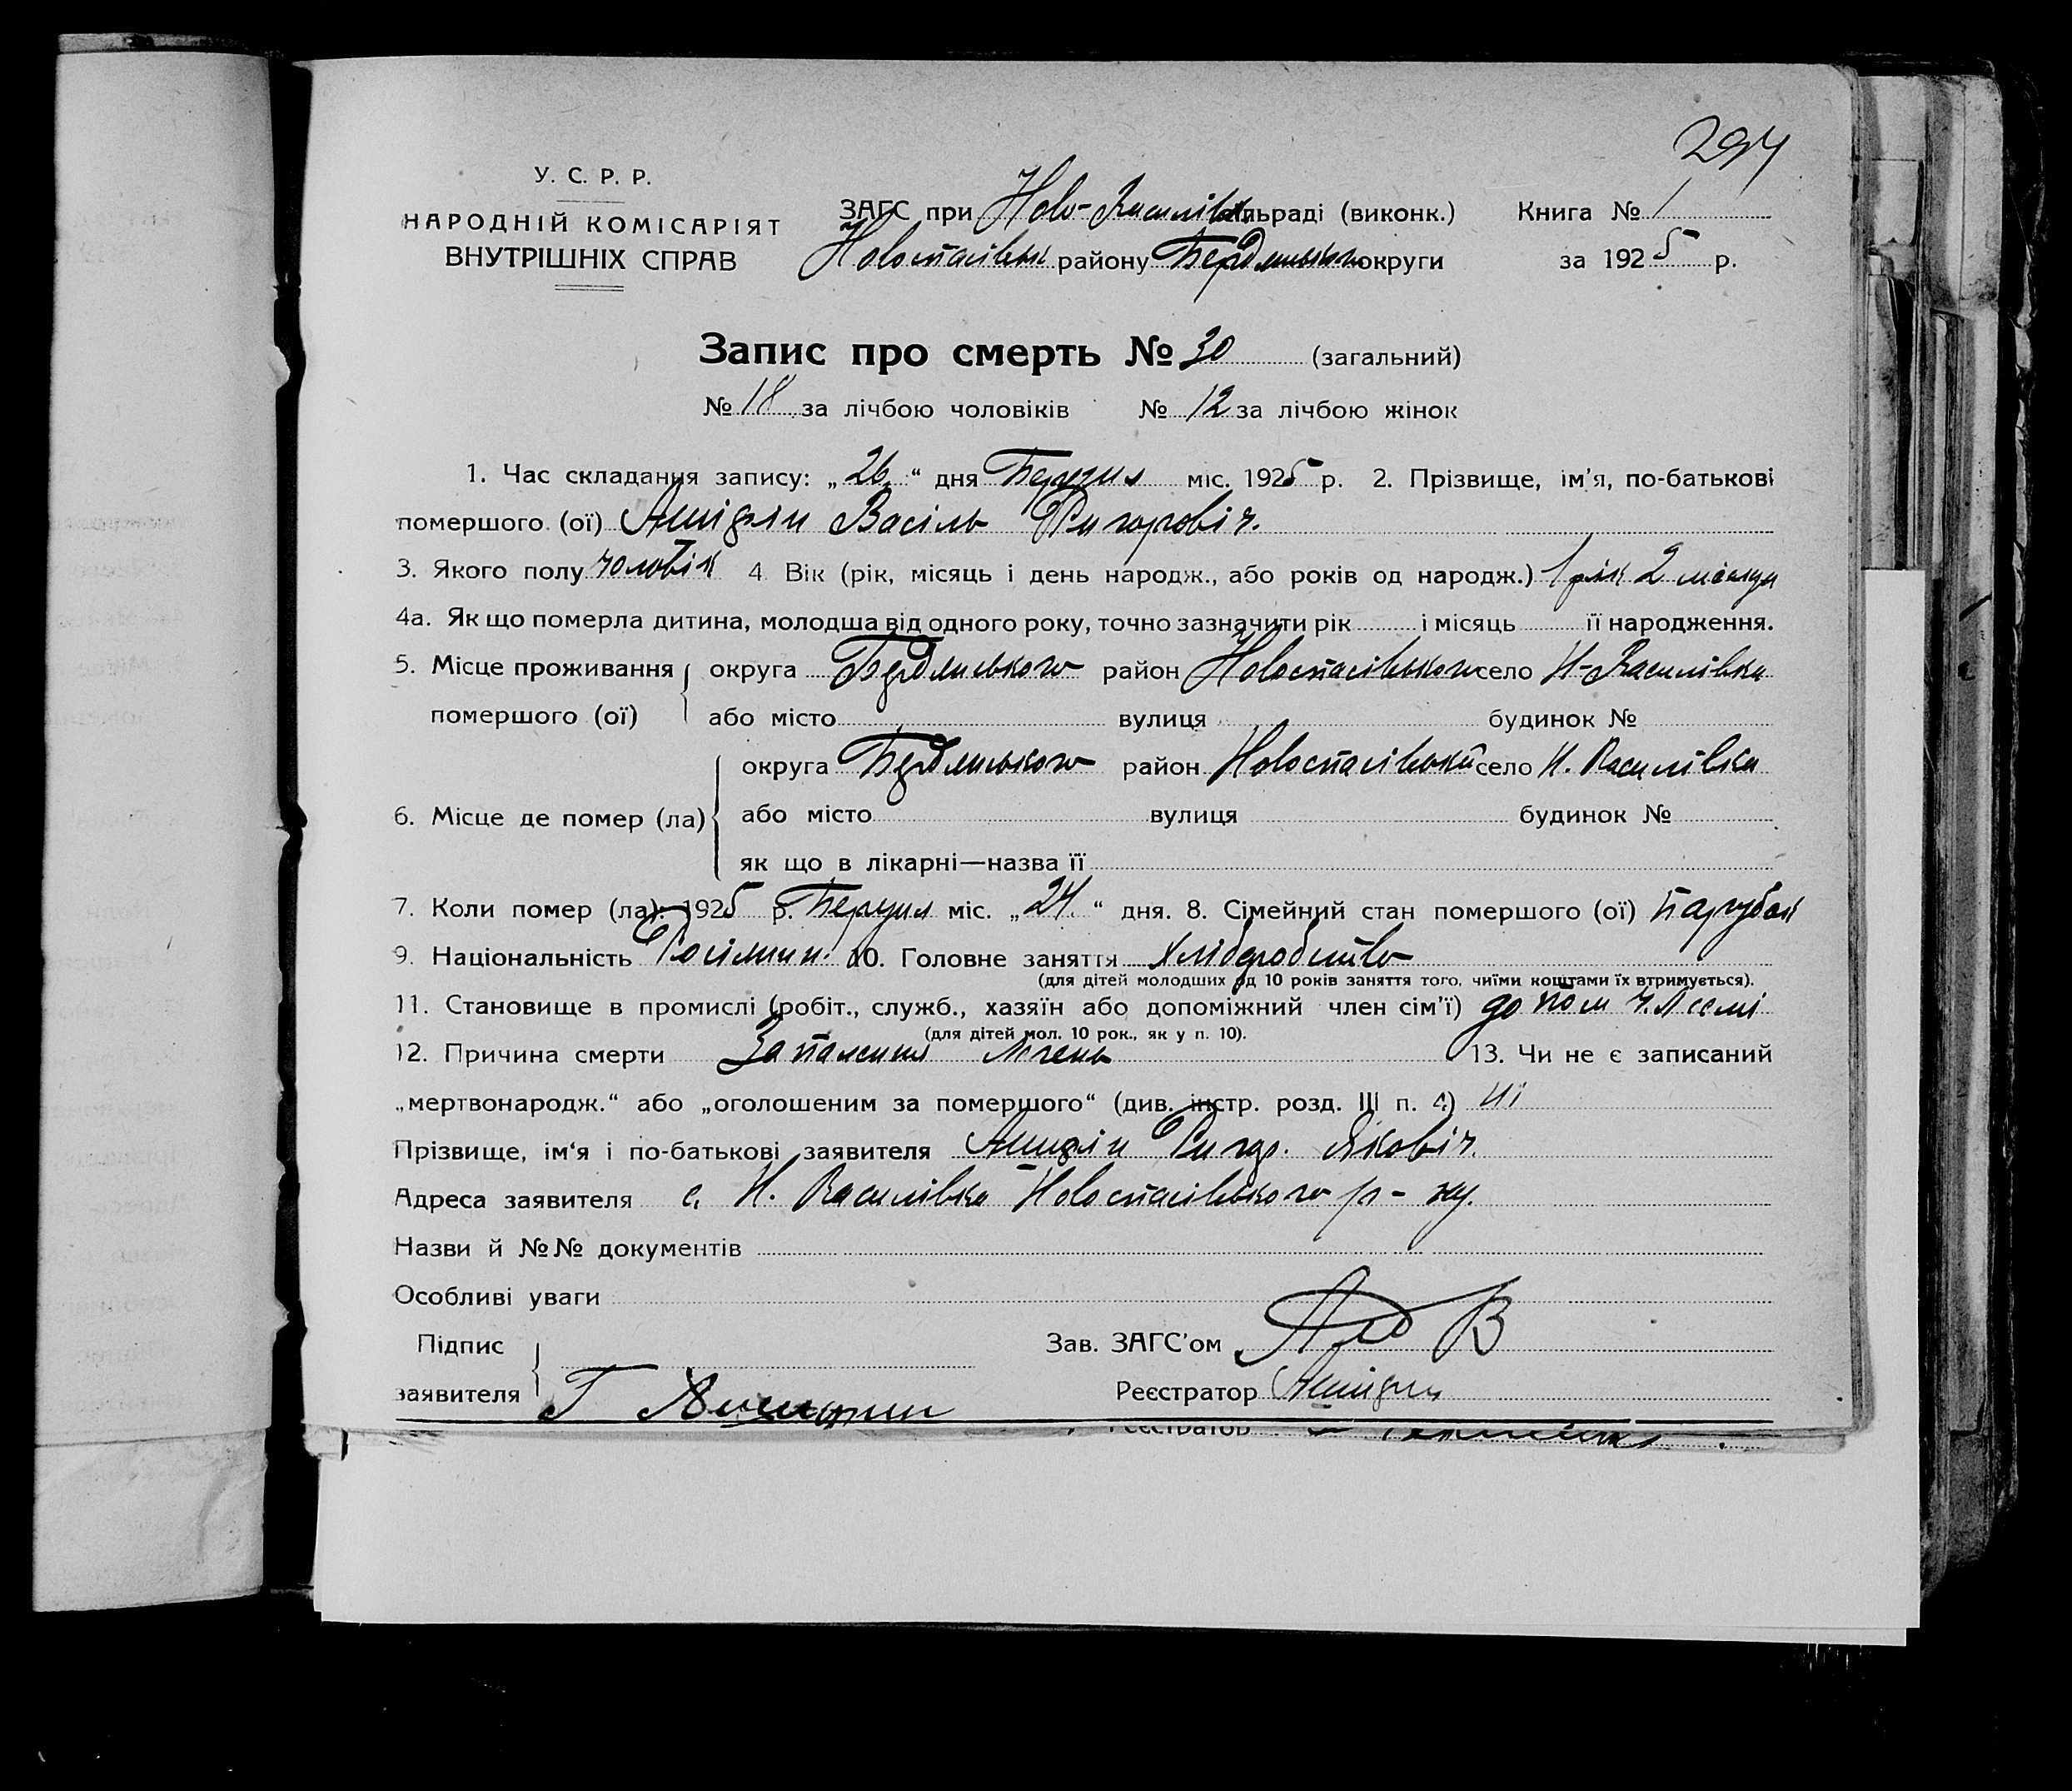 294
У. С. Р. Р.
НАРОДНІЙ КОМІСАРІЯТ
ВНУТРІШНІХ СПРАВ
ЗАГС при Ново-Василівк сільраді (виконк.) Книга № 1
Новоспасівськ району Бердянського округи за 1925 р.
Запис про смерть № 30 (загальний)
№ 18 за лічбою чоловіків № 12 за лічбою жінок
1. Час складання запису: „26“ дня Березня міс. 1925 р. 2. Прізвище, ім'я, по-батькові
помершого (ої) Василь Григорович.
3. Якого полу чоловік 4 Вік (рік, місяць і день народж., або років од народж.) 1 рік 2 місяця
4а. Як що померла дитина, молодша від одного року, точно зазначити рік і місяць її народження.
5. Місце проживання округа Бердянського район Новоспасівського село Н-Василівка
помершого (ої) або місто вулиця будинок №
округа Бердянського район Новоспасівський село Н. Василівка
6. Місце де помер (ла) або місто вулиця будинок №
як що в лікарні—назва її
7. Коли помер (ла): 1925 р. Березня міс. „24.“ дня. 8. Сімейний стан помершого (ої) парубок
9. Національність Росіянин. 10. Головне заняття хліборобство
(для дітей молодших од 10 років заняття того, чиїми коштами їх втримується).
11. Становище в промислі (робіт., служб., хазяїн або допоміжний член сім'ї) допом ч. сем'ї
(для дітей мол. 10 рок., як у п. 10).
12. Причина смерти Запалення легень 13. Чи не є записаний
„мертвонародж.“ або „оголошеним за помершого“ (див. інстр. розд. III п. 4) ні
Прізвище, ім'я і по-батькові заявителя Григор. Якович.
Адреса заявителя с. Н. Василівка Новоспасівського р-ну.
Назви й №№ документів
Особливі уваги
Підпис Зав. ЗАГС'ом
заявителя Г Реєстратор
Реєстратор